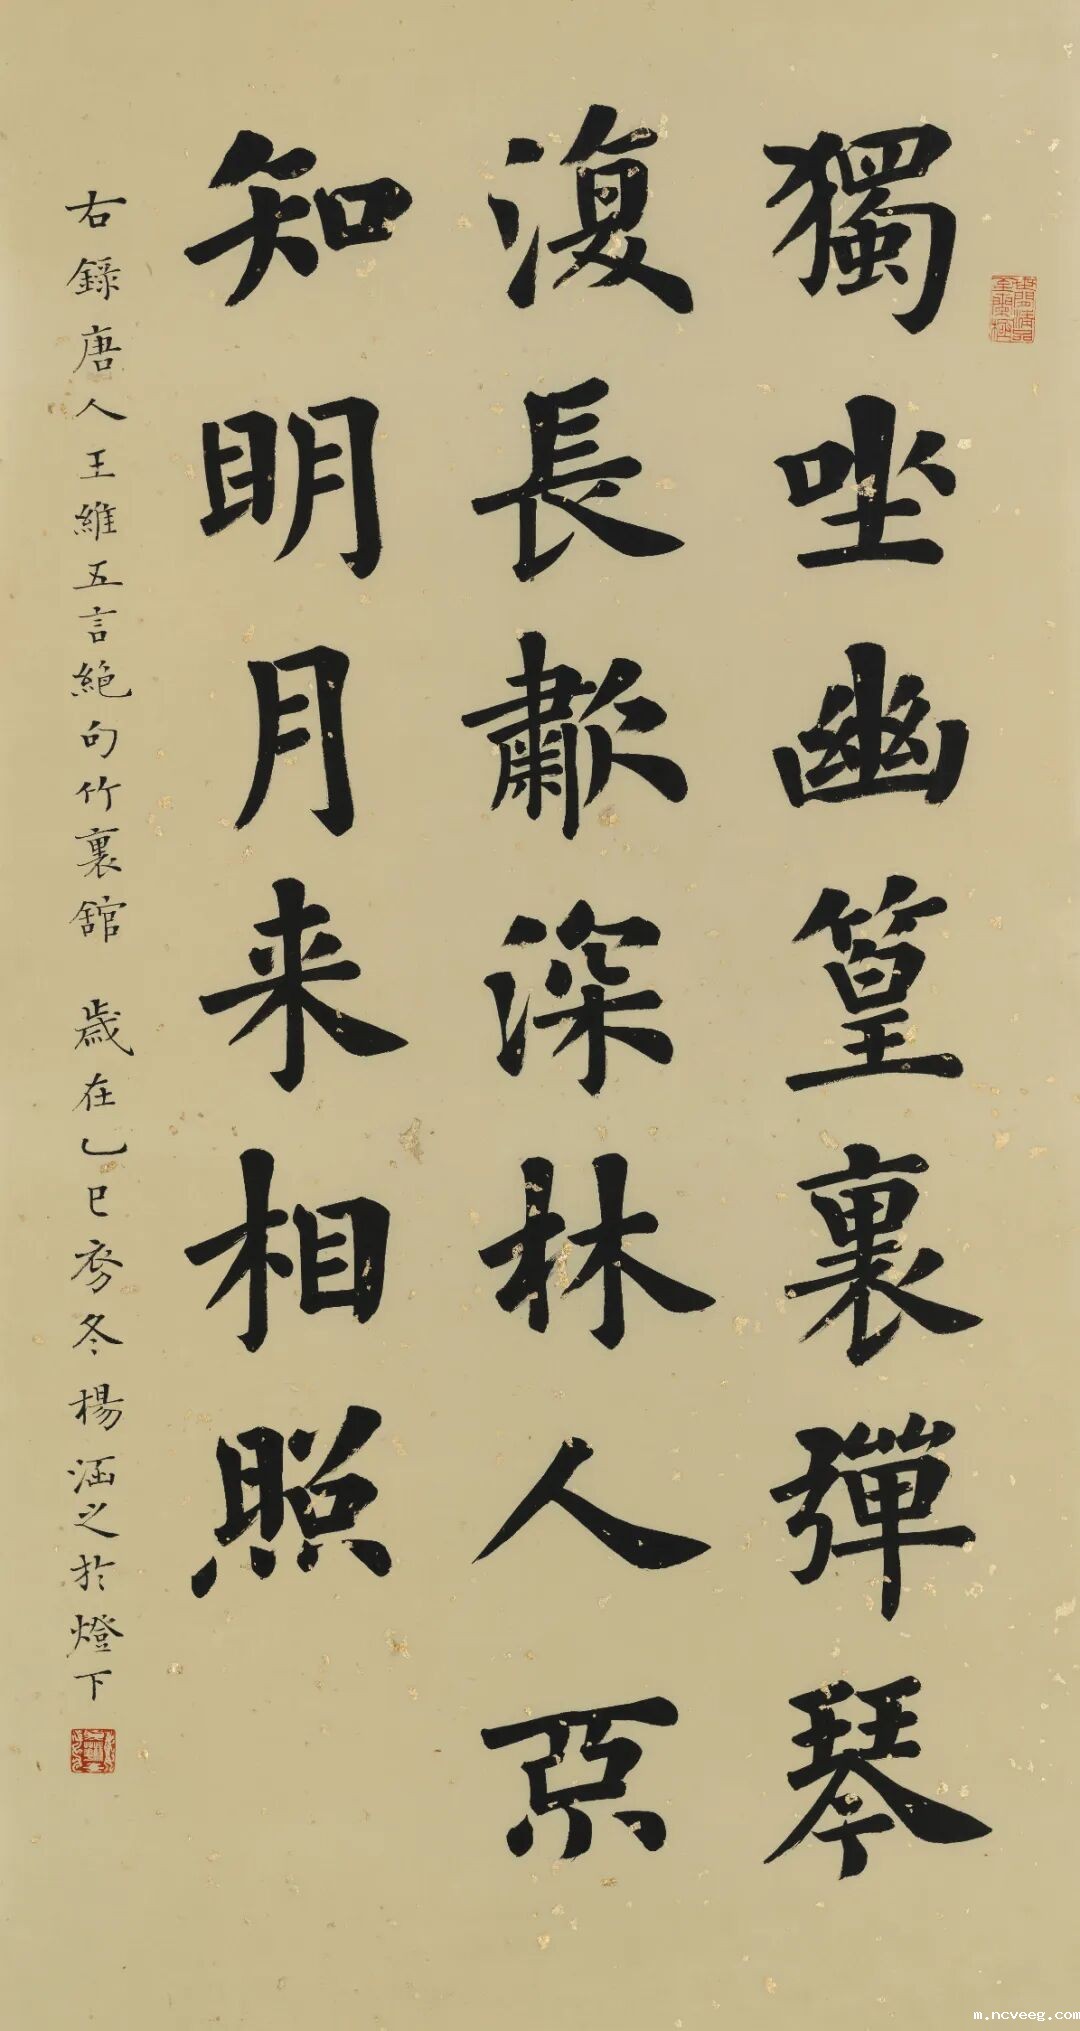 獨坐幽篁裏彈琴
復長歗深林人不
知明月来相照
右錄唐人王維五言絕句竹裏舘 歲在乙巳冬楊涵之於燈下
m.ncveeg.com